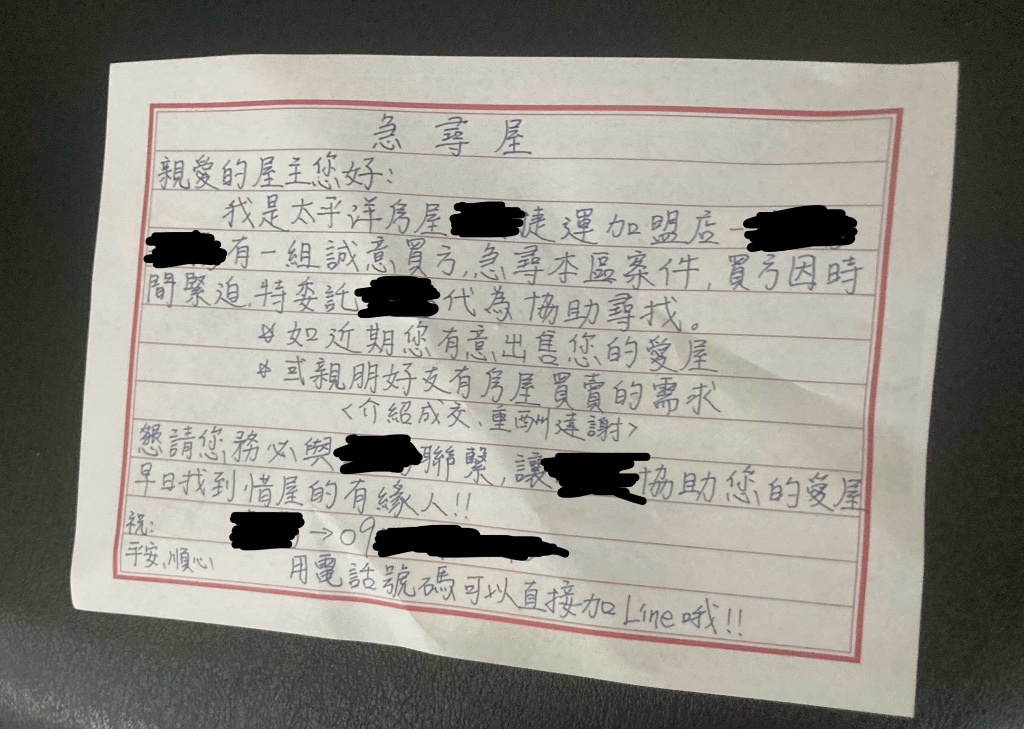 急尋屋
親愛的屋主您好:
我是太平洋房屋 捷運加盟店-
有一組誠意買方,急尋本區案件,買方因時
間緊迫,特委託 代為協助尋找。
*如近期您有意出售您的愛屋
*或親朋好友有房屋買賣的需求
<介紹成交、重酬達謝>
懇請您務必與 聯繫,讓 協助您的愛屋
早日找到惜屋的有緣人!!
祝: →09
平安、順心
用電話號碼可以直接加Line哦!!